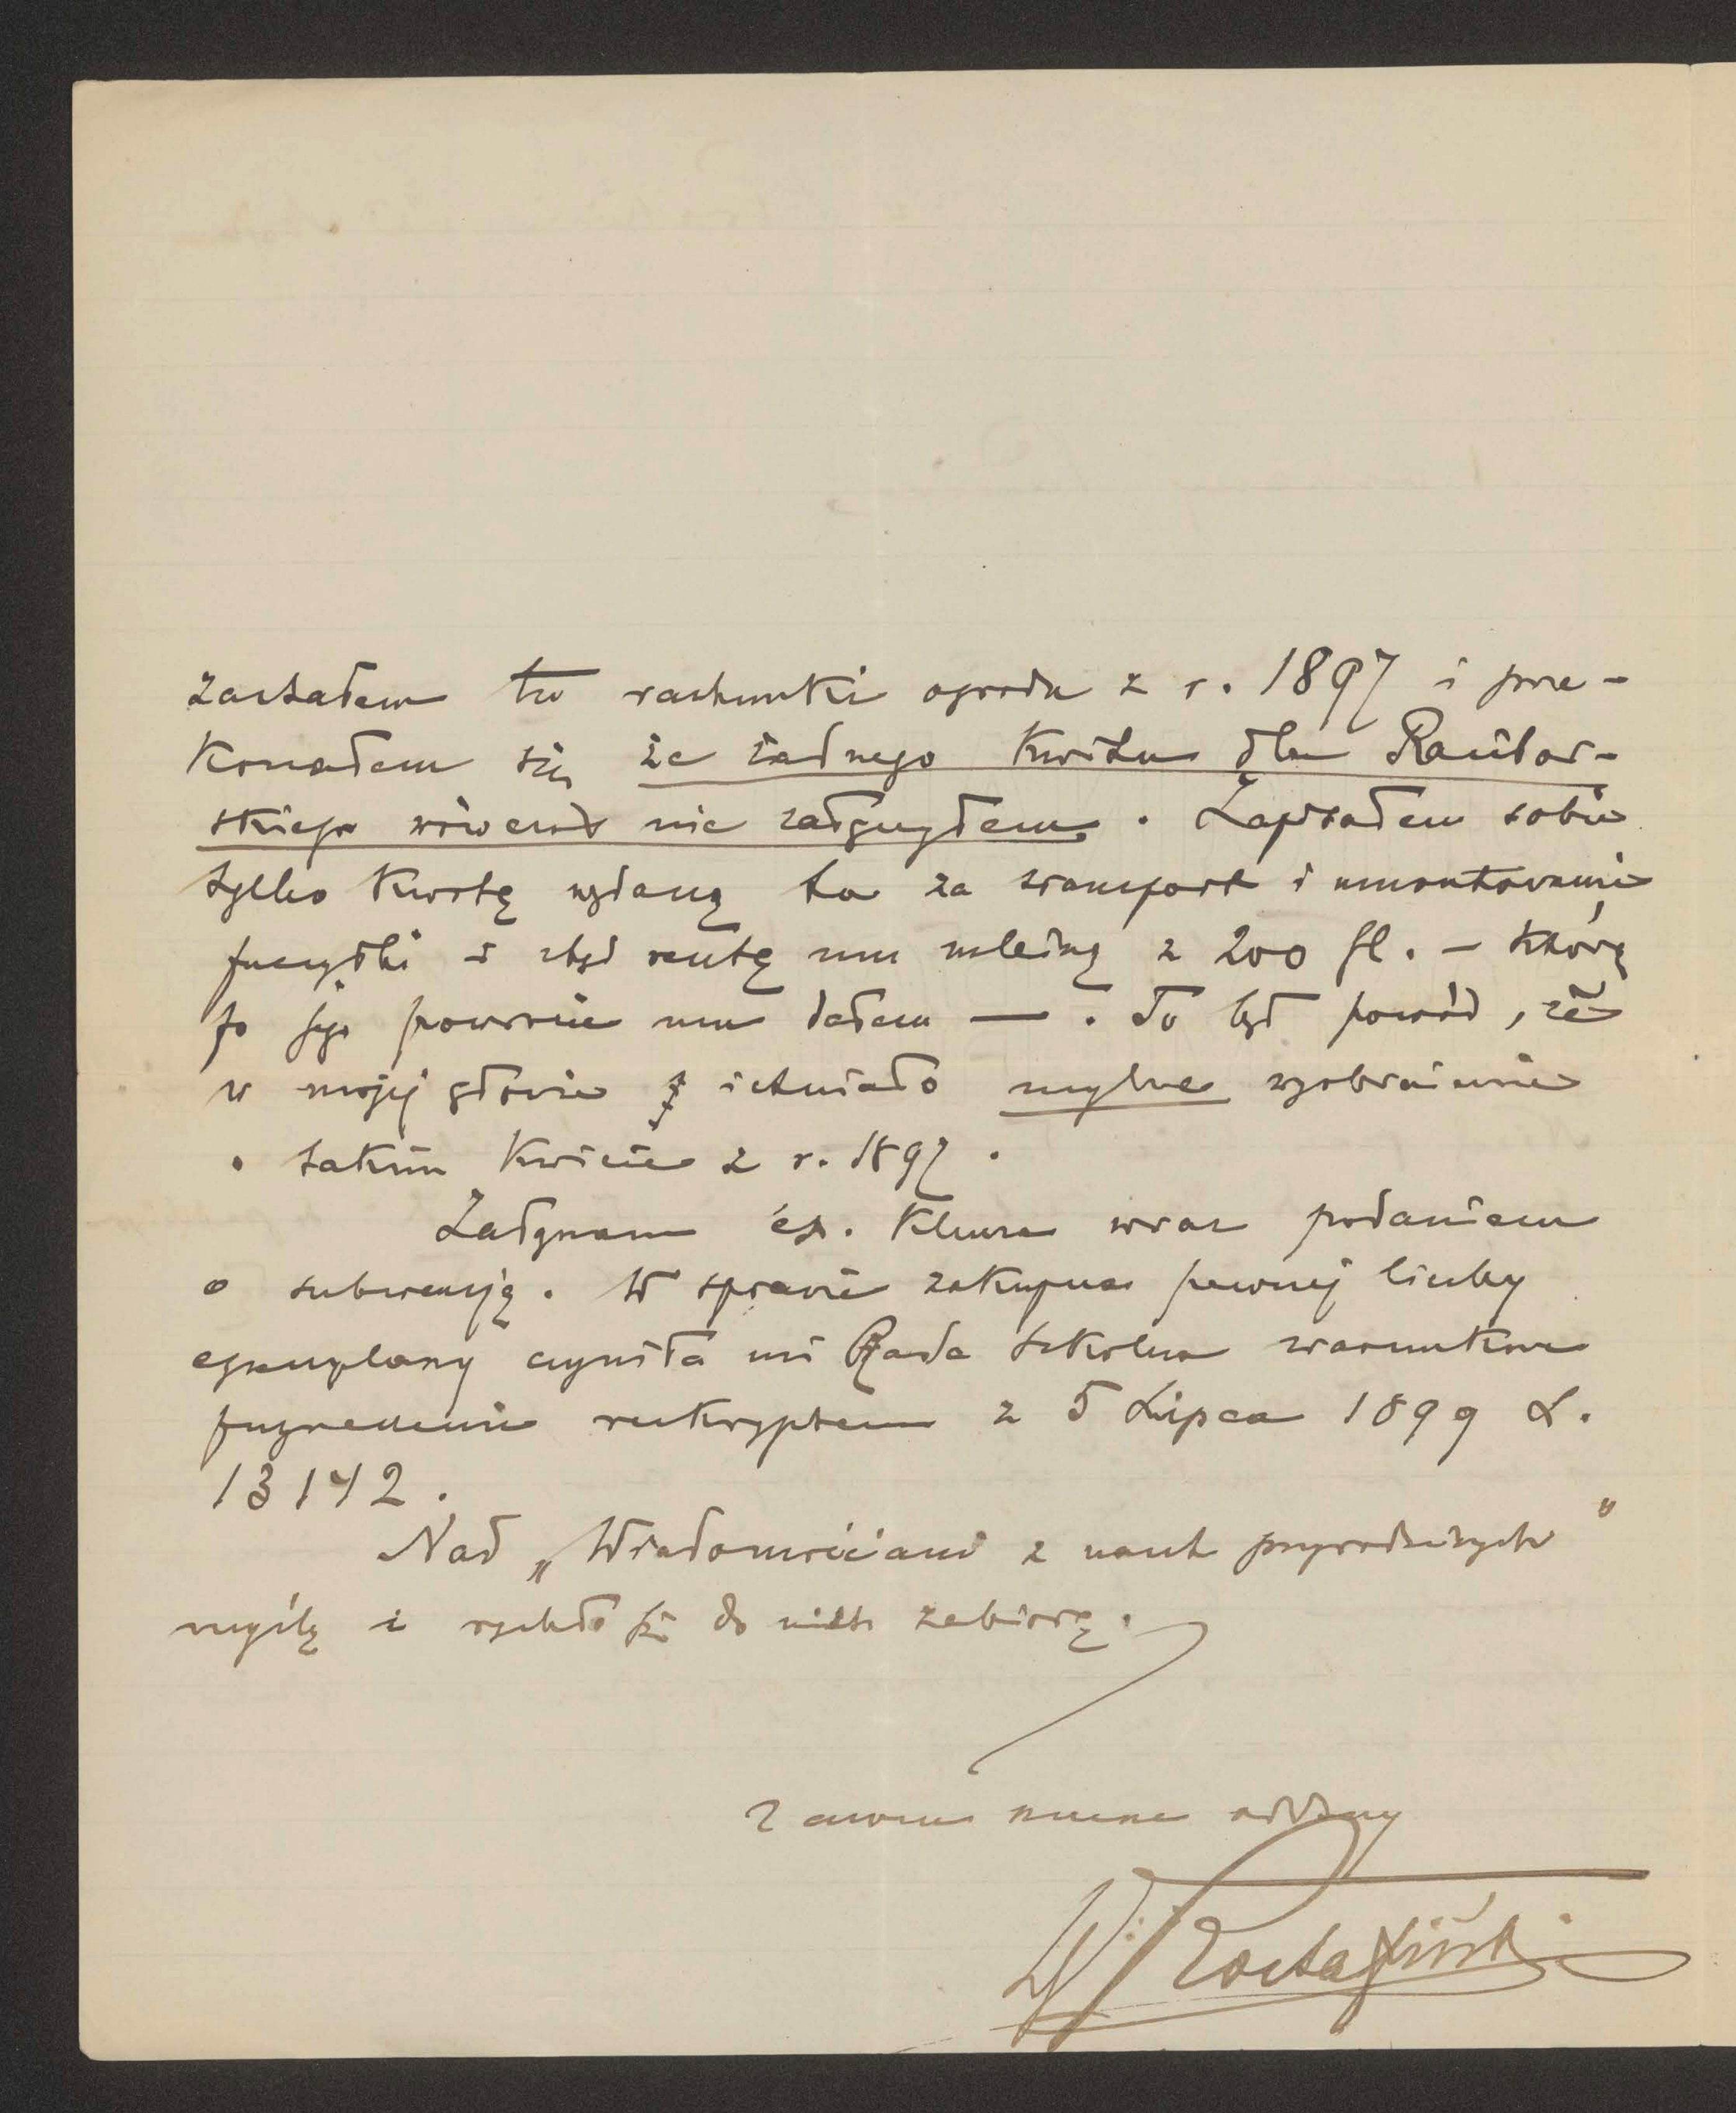 zastałem tu rachunki ogrodu z r. 1897 i prze-
konałem się że żadnego kwitu dla Racibor-
skiego wówczas nie załączyłem. Zapisałem sobie
tylko kwotę wydaną tu za transport i umontowanie
przesyłki i stąd resztę mu należną z 200 fl. – którą
po jego powrocie mu dałem —. To był powód, że
w mojej głowie istniało mylne wyobrażenie
o takim kwicie z r. 1897.
Załączam egz. Klucza wraz podaniem
o subwencję. W sprawie zakupna pewnej liczby
egzemplarzy czyniła mi Rada szkolna warunkowe
przyrzeczenie reskryptem z 5 Lipca 1899 L.
13142.
Nad „Wiadomościami z nauk przyrodniczych"
myślę i rychło się do nich zabiorę.
Zawsze szczerze oddany
W: Rostafiński